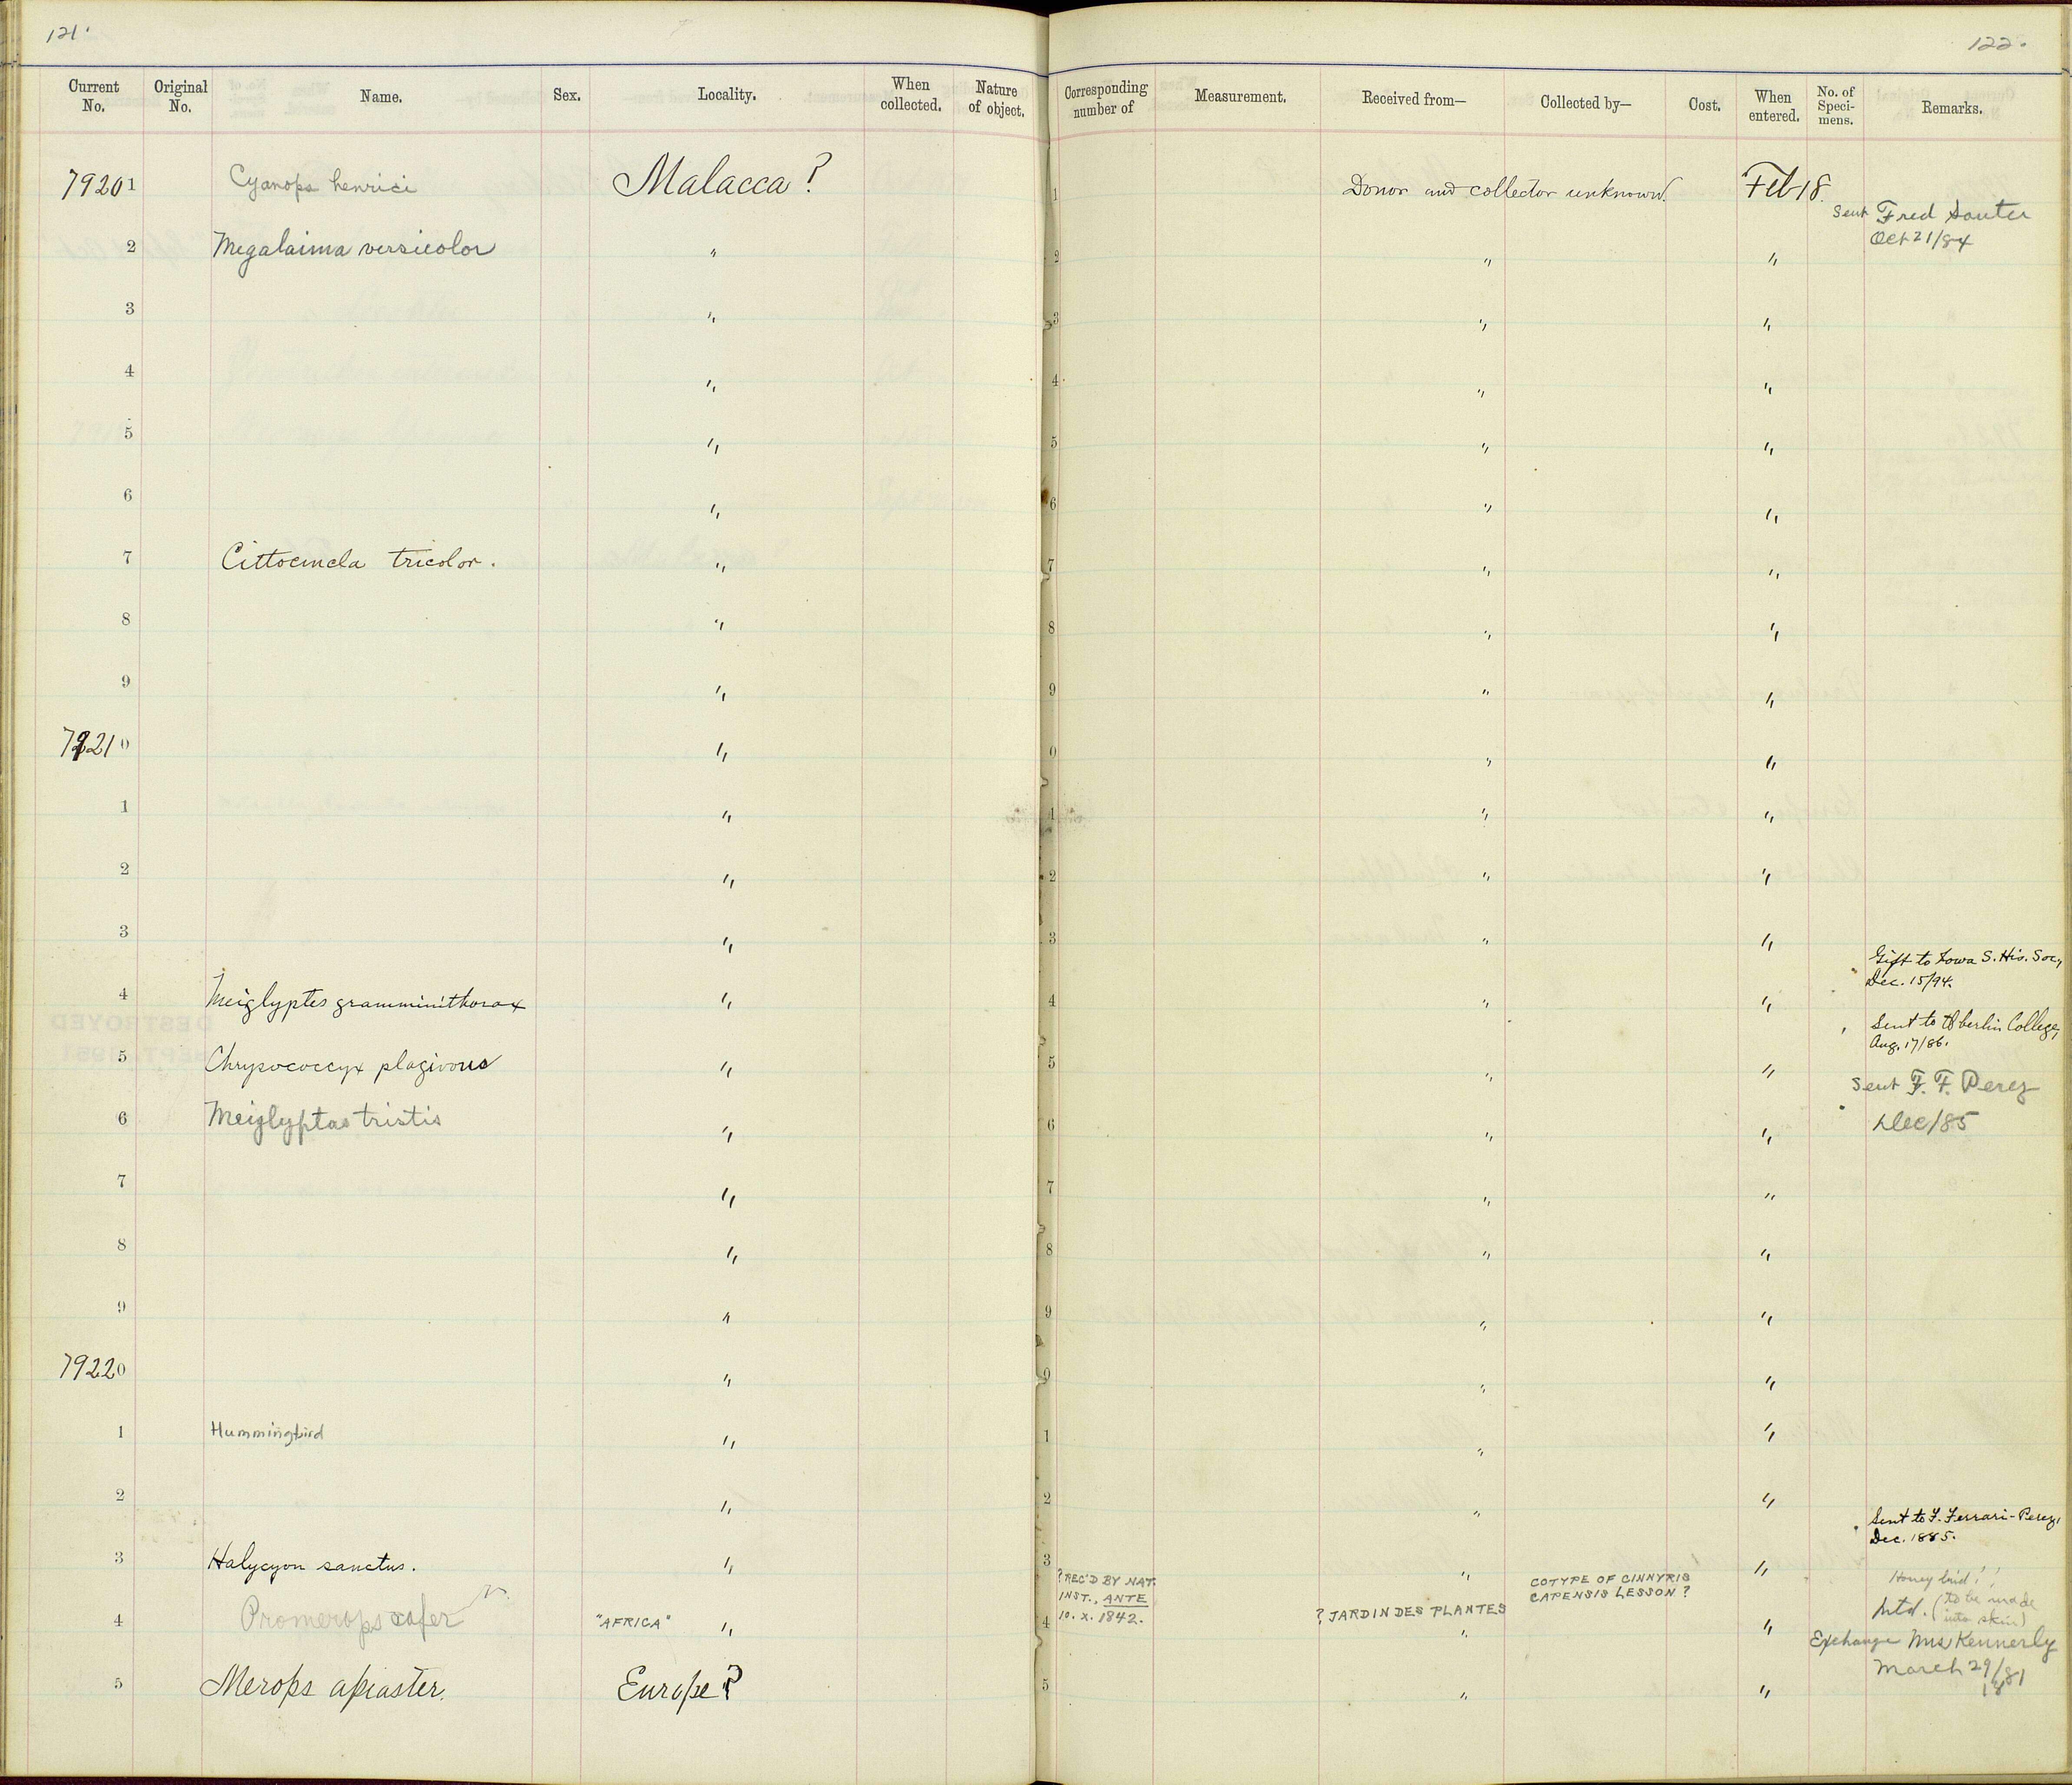 121.
122.
Current No. Original No. Name. Sex. Locality. When collected. Nature of object. Corresponding number of Measurement. Received from— Collected by— Cost. When entered. No. of Specimens. Remarks.
79201 Cyanops henrici Malacca? 1 Donor and collector unknown. Feb 18. Sent Fred Sauter
Oct 21/84
2 Megalaima versicolor " 2 " "
3 " 3 " "
4 " 4 " "
5 " 5 " "
6 " 6 " "
7 Cittocincla tricolor. " 7 " "
8 " 8 " "
9 " 9 " "
79210 " 0 " "
1 " 1 " "
2 " 2 " "
3 " 3 " "
Gift to Iowa S. His. Soc,
Dec. 15/94.
4 Meiglyptes gramminithorax " 4 " "
Sent to Oberlin College,
Aug. 17/86.
5 Chrysococcyx plagivous " 5 " "
Sent F. F. Perez
Dec/85
6 Meiglyptas tristis " 6 " "
7 " 7 " "
8 " 8 " "
9 " 9 " "
79220 " 0 " "
1 Hummingbird " 1 " "
2 " 2 " "
Sent to F. Ferrari-Perez,
Dec. 1885.
3 Halycyon sanctus. " 3 " "
? REC'D BY NAT. INST., ANTE 10. X. 1842.
COTYPE OF CINNYRIS
CAPENSIS LESSON ?
Honey bird!!
Mtd. (to be made
into skin)
4 Promerops cafer "AFRICA" " 4 ? JARDIN DES PLANTES " "
Exchange Mrs Kennerly
March 29/81
18
5 Merops apiaster. Europe? 5 " "